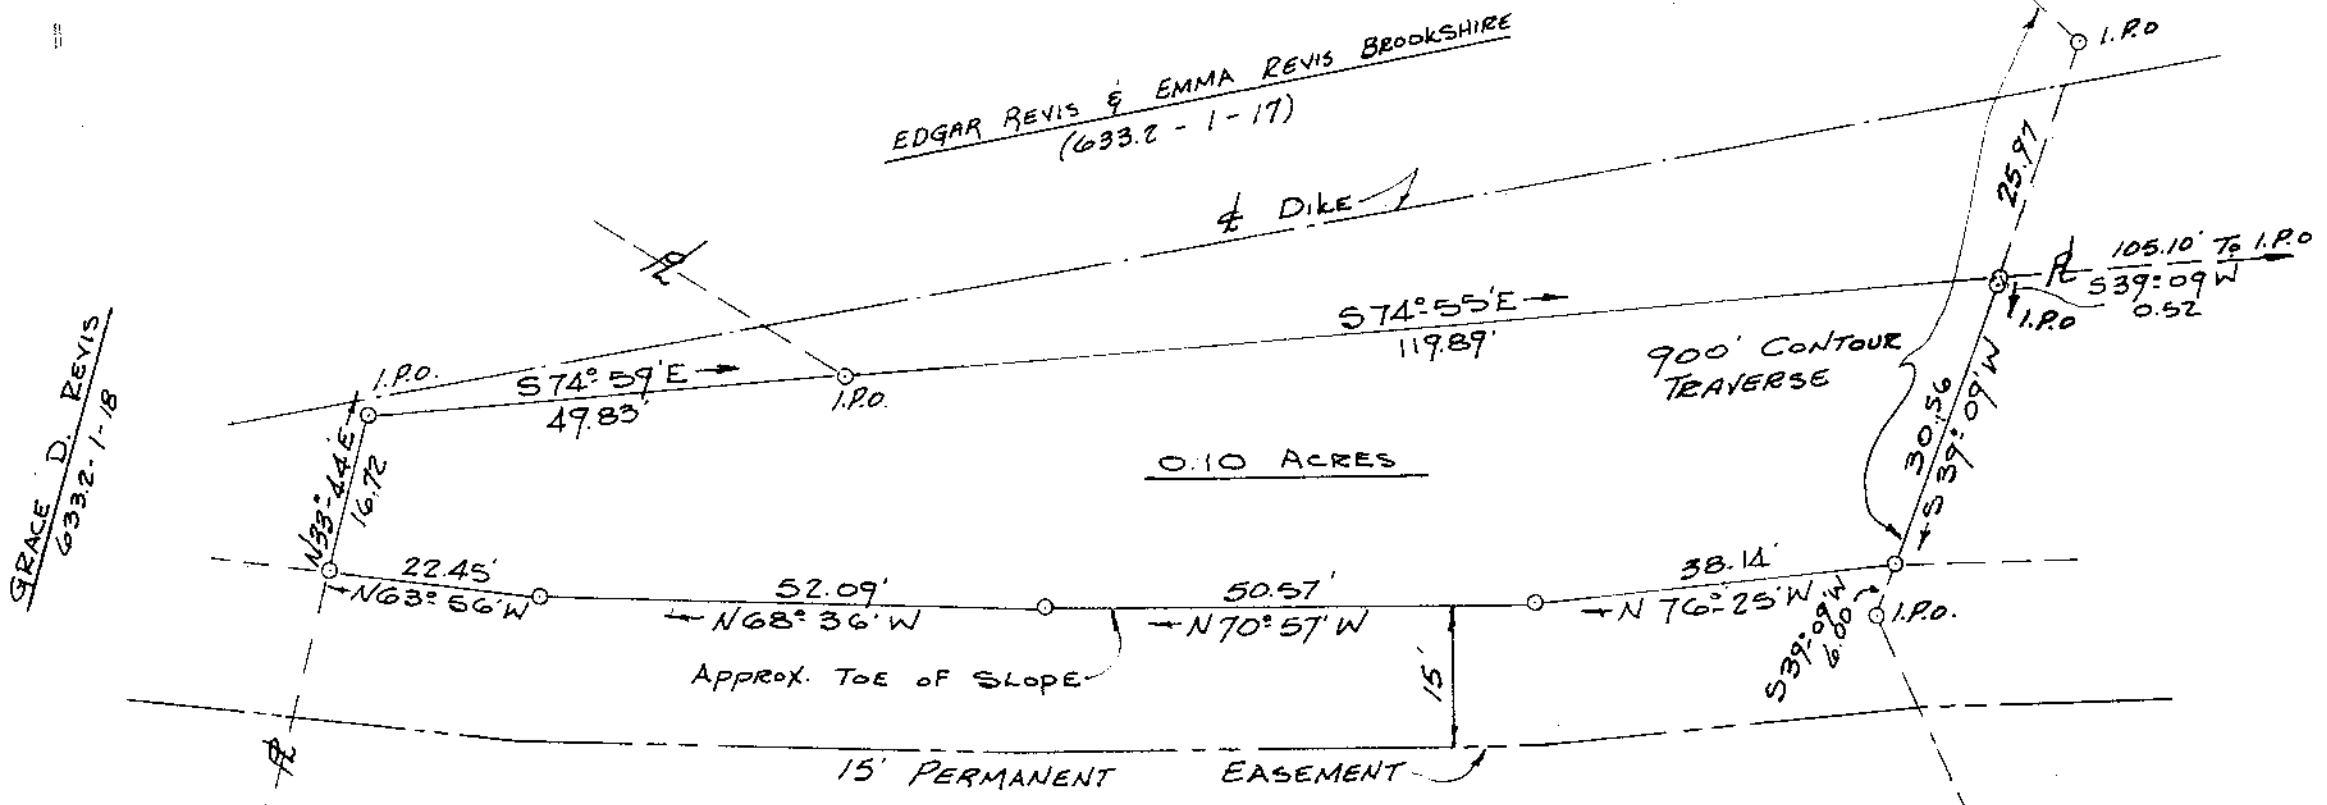 I.P.O
EDGAR REVIS & EMMA REVIS BROOKSHIRE
(633.2 - 1 - 17)
25.97
℄ DIKE
PL
PL 105.10' To I.P.O
S39°-09'W
0.52
I.P.O
S74°-55'E
119.89'
900' CONTOUR
TRAVERSE
I.P.O.
S74°-59'E
49.83'
I.P.O.
GRACE D. REVIS
633.2-1-18
N33°-44'E
16.72
0.10 ACRES
30.56
S39°-09'W
22.45'
N63°-56'W
52.09'
N68°-36'W
50.57'
N70°-57'W
38.14'
N76°-25'W
S39°-09'W
6.00
I.P.O.
APPROX. TOE OF SLOPE
15'
PL
15' PERMANENT EASEMENT